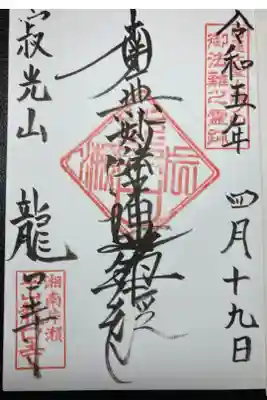 令和五年 四月十九日
南無妙法蓮華経
寂光山 龍口寺
御法難之霊跡
湘南片瀬